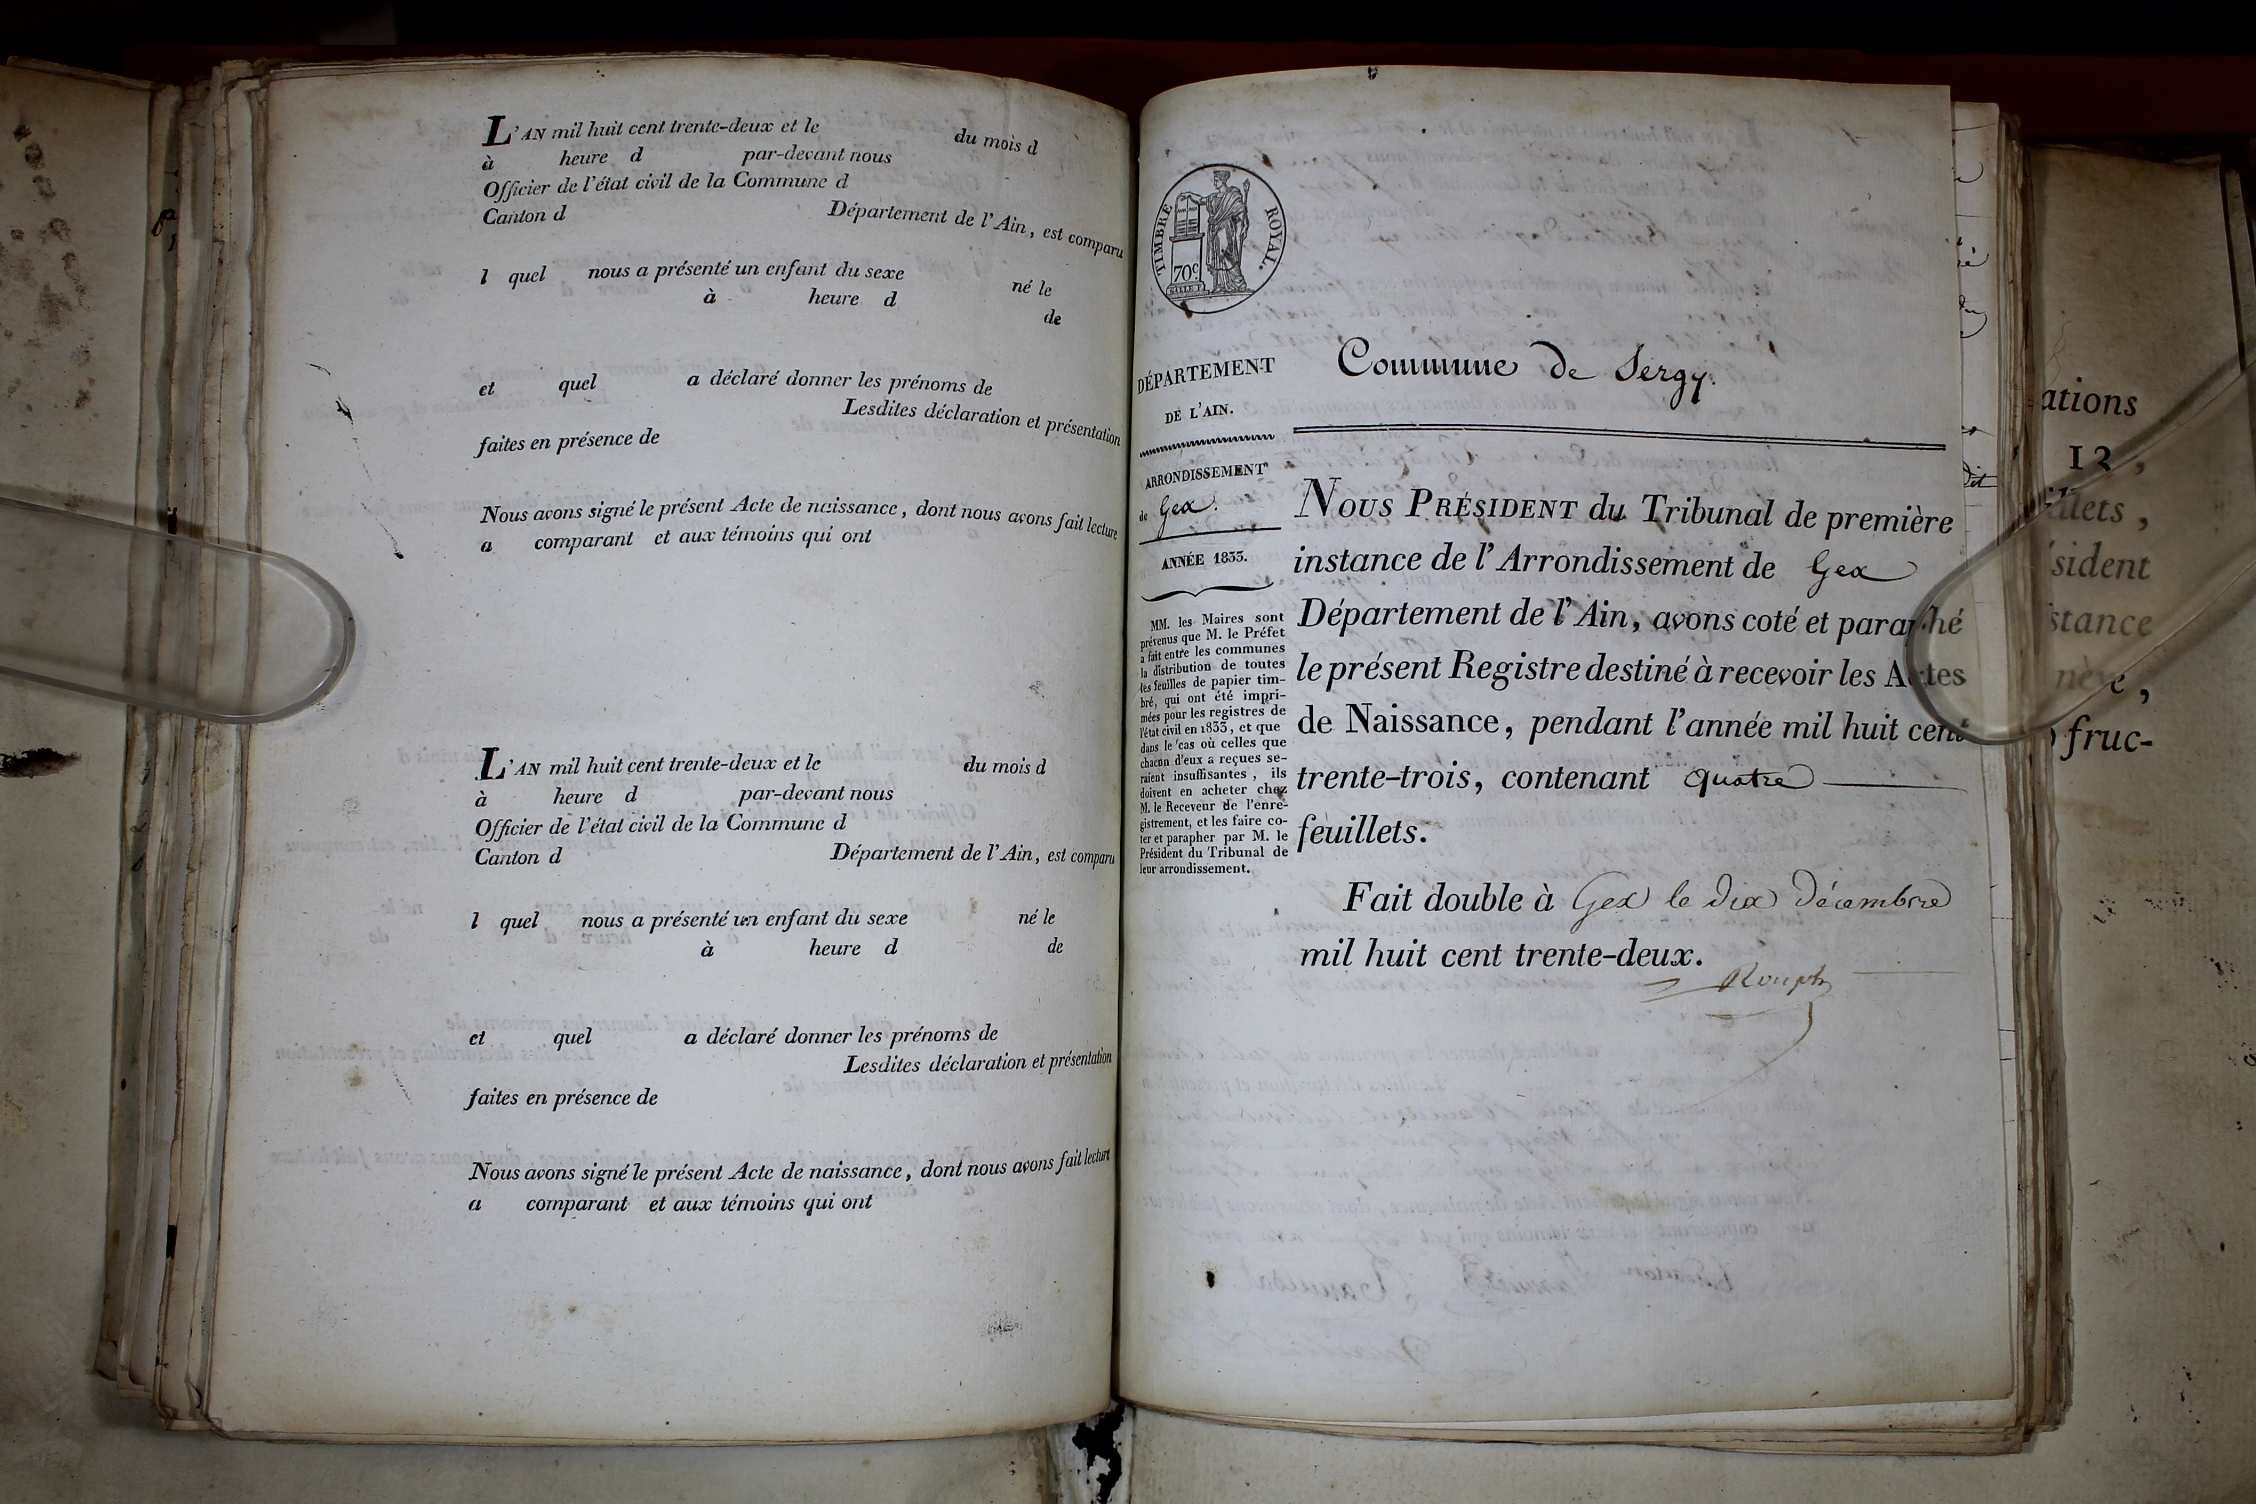 L'AN mil huit cent trente-deux et le du mois d
à heure d par-devant nous
Officier de l'état civil de la Commune d
Canton d Département de l'Ain, est comparu
l quel nous a présenté un enfant du sexe né le
à heure d de
et quel a déclaré donner les prénoms de
Lesdites déclaration et présentation
faites en présence de
Nous avons signé le présent Acte de naissance, dont nous avons fait lecture
a comparant et aux témoins qui ont
L'AN mil huit cent trente-deux et le du mois d
à heure d par-devant nous
Officier de l'état civil de la Commune d
Canton d Département de l'Ain, est comparu
l quel nous a présenté un enfant du sexe né le
à heure d de
et quel a déclaré donner les prénoms de
Lesdites déclaration et présentation
faites en présence de
Nous avons signé le présent Acte de naissance, dont nous avons fait lecture
a comparant et aux témoins qui ont
TIMBRE ROYAL.
70c
DÉPARTEMENT
DE L'AIN.
ARRONDISSEMENT
de Gex.
ANNÉE 1833.
MM. les Maires sont
prévenus que M. le Préfet
a fait entre les communes
la distribution de toutes
les feuilles de papier tim-
bré, qui ont été impri-
mées pour les registres de
l'état civil en 1833, et que
dans le cas où celles que
chacun d'eux a reçues se-
raient insuffisantes, ils
doivent en acheter chez
M. le Receveur de l'enre-
gistrement, et les faire co-
ter et parapher par M. le
Président du Tribunal de
leur arrondissement.
Commune de Sergy.
NOUS PRÉSIDENT du Tribunal de première
instance de l'Arrondissement de Gex
Département de l'Ain, avons coté et paraphé
le présent Registre destiné à recevoir les Actes
de Naissance, pendant l'année mil huit cent
trente-trois, contenant quatre
feuillets.
Fait double à Gex le dix décembre
mil huit cent trente-deux.
Rouph
ations
12,
illets,
sident
stance
nève,
fruc-